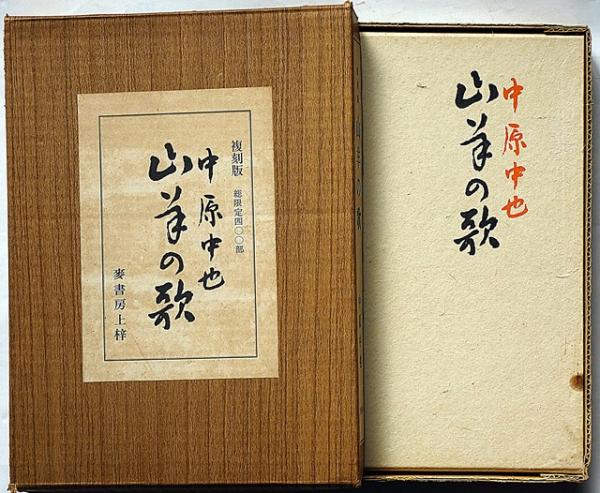 複刻版 総限定四〇〇部
中原中也
山羊の歌
麥書房上梓
中原中也
山羊の歌